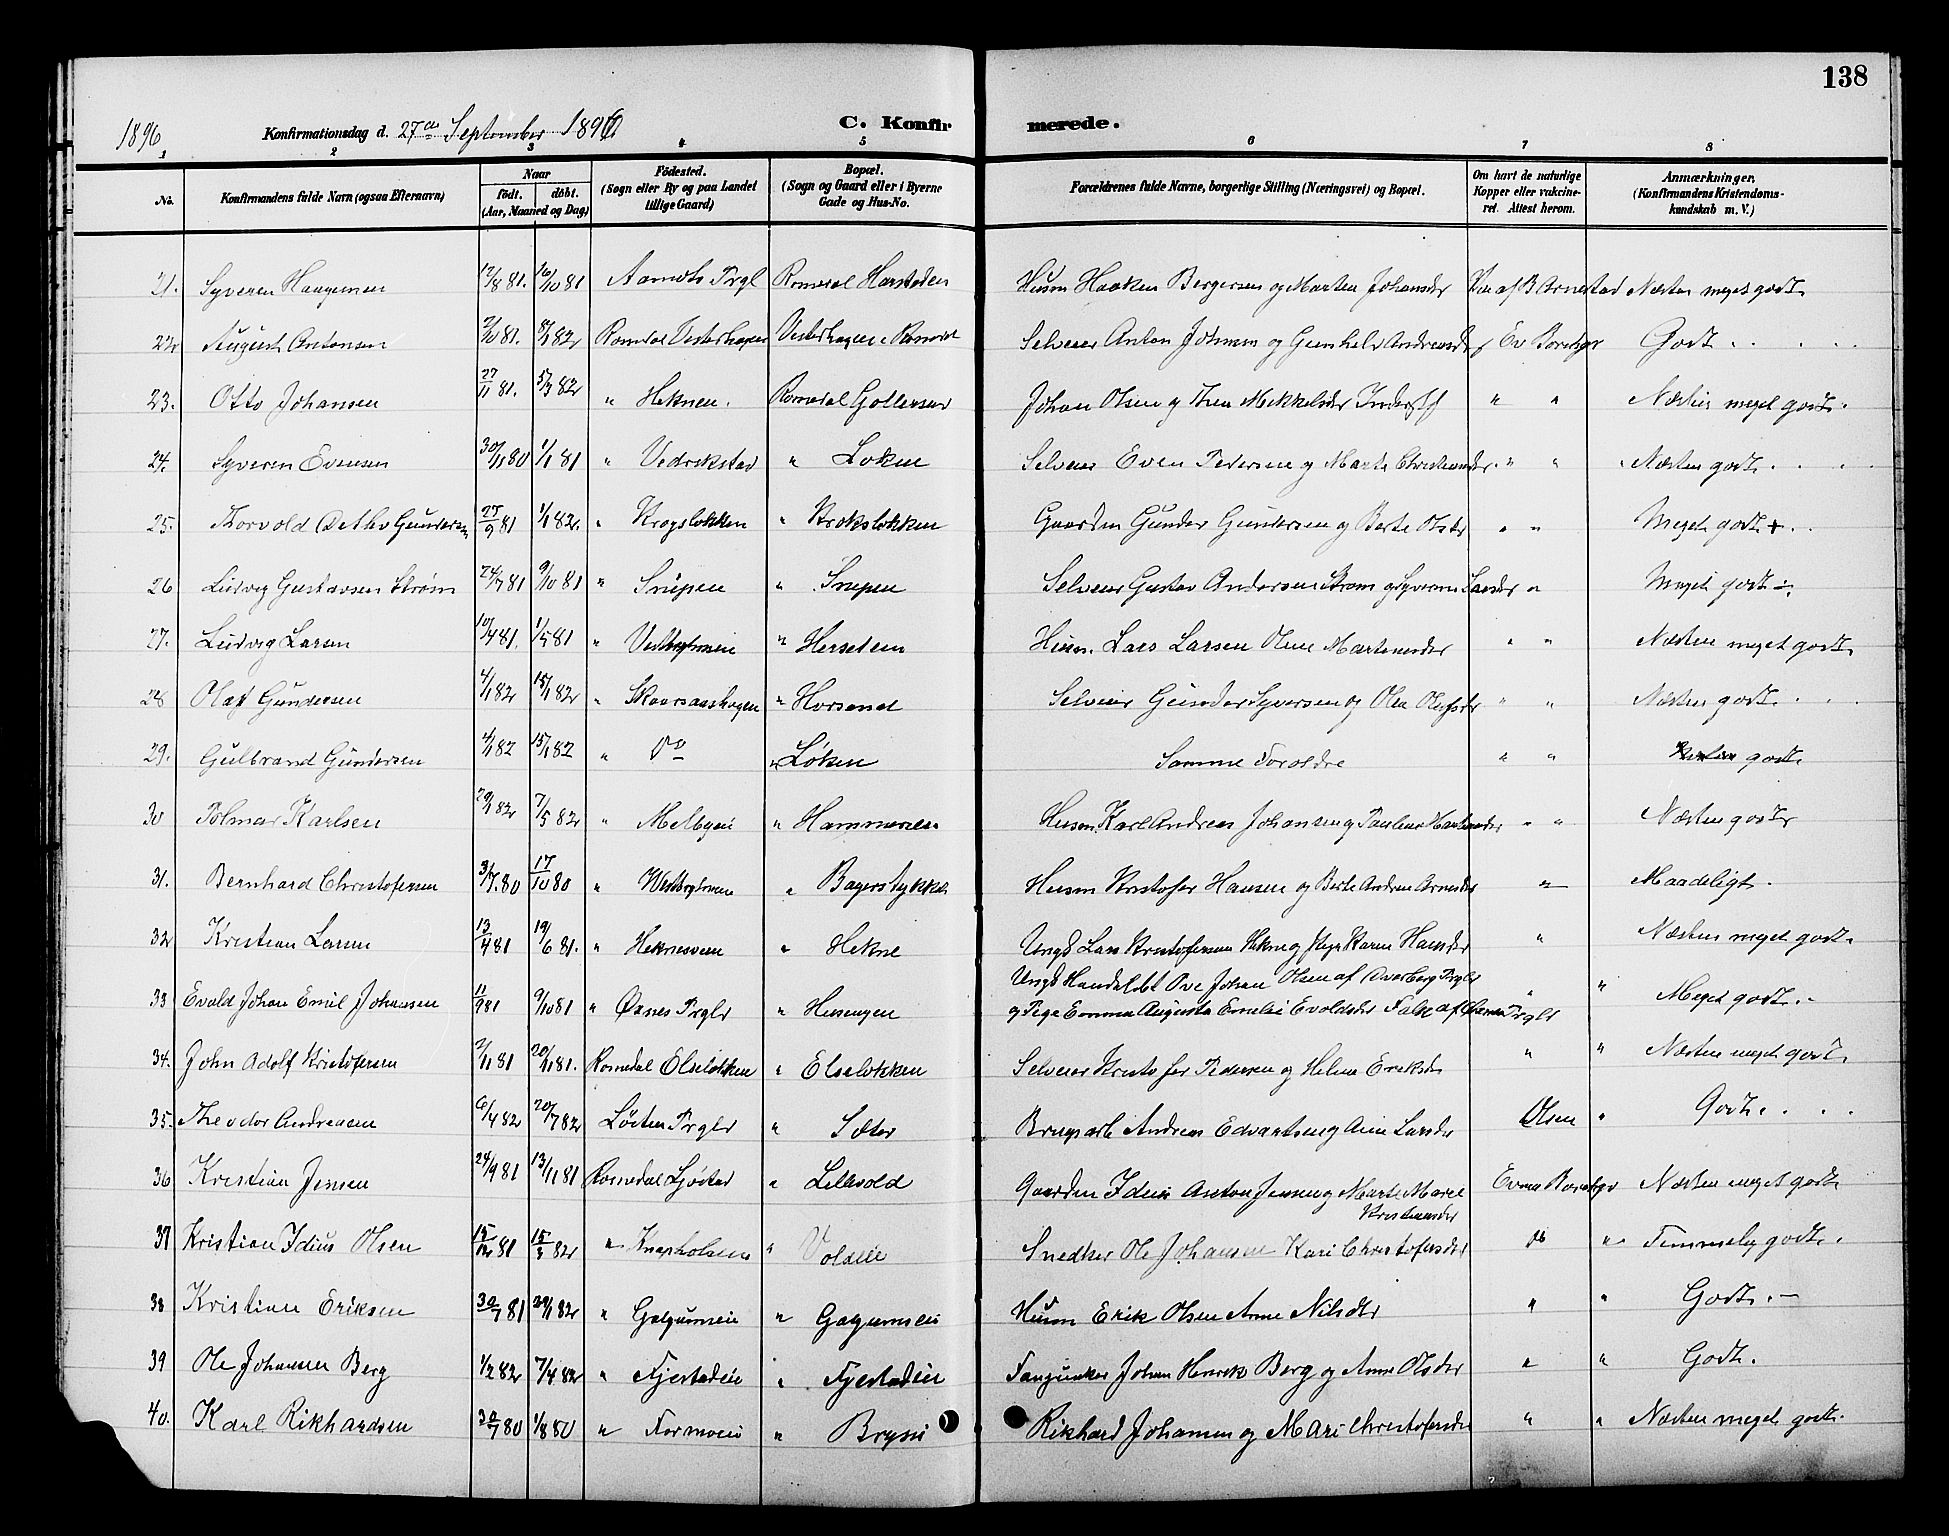 138
1896 Konfirmationsdag d. 27de September 1896 C. Konfirmerede.
1 2 3 4 5 6 7 8
No. Konfirmandens fulde Navn (ogsaa Efternavn) Naar født. døbt. (Aar, Maaned og Dag) Fødested. (Sogn eller By og paa Landet tillige Gaard) Bopæl. (Sogn og Gaard eller i Byerne Gade og Hus-No. Forældrenes fulde Navne, borgerlige Stilling (Næringsvei) og Bopæl. Om havt de naturlige Kopper eller vakcineret. Attest herom. Anmærkninger. (Konfirmandens Kristendomskundskab m. V.)
21. Syveren Haagensen 12/8 81. 16/10 81 Aamots Prgl Romedal Harstaden Husm Haaken Bergersen og Marten Johansdr Næsten meget godt.
22 August Antonsen 2/10 81. 8/1 82 Romedal Vesterhagen Vesterhagen i Romedal Selveier Anton Johnsen og Gunhild Andreasdr Godt
23. Otto Johansen 27/11 81. 5/3 82 " Heknen. Romedal Johan Olsen og Mikkelsdr " " Næsten meget godt.
24. Syveren Evensen 30/11 80 1/1 81 " " Løken Selveier Even Pedersen og Marte Christiansdr. " " Næsten godt.
25. Thorvold Detlev Gundersen 27/9 81 1/1 82. " Krogsløkken " Kroksløkken Gaardm Gunder Gundersen og Berte Olsdr " " Meget godt +.
26 Ludvig Gustavsen Strøm 24/7 81 9/10 81 " Snipen " Snipen Selveier Gustav Andersen Strøm og Syverine Larsdr " Meget godt ÷
27. Ludvig Larsen 10/4 81. 1/5 81 " " Husm. Lars Larsen Oline Martinusdr " " Næsten meget godt.
28 Olaf Gundersen 4/1 82 15/1 82 " Skaarsaashagen " Horsend Selveier Gunder Syversen og Olea Olafsdr " " Næsten godt.
29. Gulbrand Gundersen 4/1 82 15/1 82 " Do " Løken Samme Foræoldre " " godt.
30 Tolmar Karlsen 29/1 82 7/5 82 " Melbyeie " Hammeren Husm Karl Andreas Johansen og Pauline Martinusdr " " Næsten godt
31. Bernhard Christofersen 3/7. 80 17/10 80 " " Bagerstykket Husm Kristofer Hansen og Berte Andrea Arnesdr " Maadeligt.
32 Kristian Larsen 13/4 81 19/6 81. " Heknesveen " Hekne Ungk Lars Kristofersen Hekne og Pige Karen Hansdr " Næsten meget godt.
33 Evald Johan Emil Johansen 11/9 81 9/10 81 " Øxnes Prgld " Husengen Ungk Handelsbt Ove Johan Olsen af Prgld
og Pige Emma Augusta Emelie Evoldsdr Falk af Prgld " " Meget godt.
34. John Adolf Kristofersen 2/11 81 20/11 81. Romedal Elseløkken " Elseløkken Selveier Kristofer Pedersen og Helene Eriksdr " " Næsten meget godt.
35. Theodor Andreasen 6/4 82 20/7 82 Løiten Prgld " Sæter Brugsarb Andreas Edvartsen og Anne Larsdr Olsen " Godt.
36 Kristian Jensen 24/9 81 13/11 81 Romedal Ljøstad " Lillevold Gaardm Idius Anton Jensen og Marte Marie
Kristiansdr Næsten meget godt
37 Kristian Idius Olsen 15/12 81 15/3 82 " Knapholsen " Volseie Snedker Ole Johansen Kari Christofersdr Do " Temmelig godt.
38 Kristian Eriksen 30/7 81 29/1 82 " Galgumeie " Gagumseie Husm Erik Olsen Anne Nilsdr " " Godt. —
39 Ole Johansen Berg 1/2 82 7/4 82 " Fjestadeie " Fjestadeie Johan Henrik Berg og Anne Olsdr " " Godt.
40. Karl Rikhardsen 30/7 80 1/8 80 " Formoeie " Bryni Rikhard Johansen og Mari Christofersdr " " Næsten meget godt.